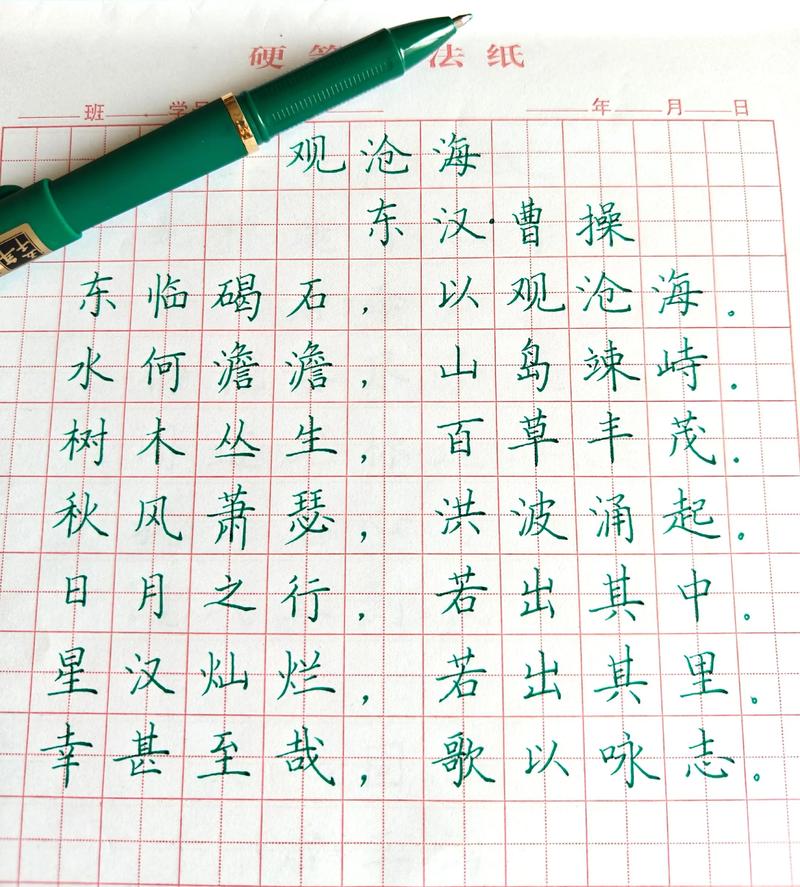 硬笔法纸
班 学号 年 月 日
观沧海
东汉·曹操
东临碣石，以观沧海。
水何澹澹，山岛竦峙。
树木丛生，百草丰茂。
秋风萧瑟，洪波涌起。
日月之行，若出其中。
星汉灿烂，若出其里。
幸甚至哉，歌以咏志。